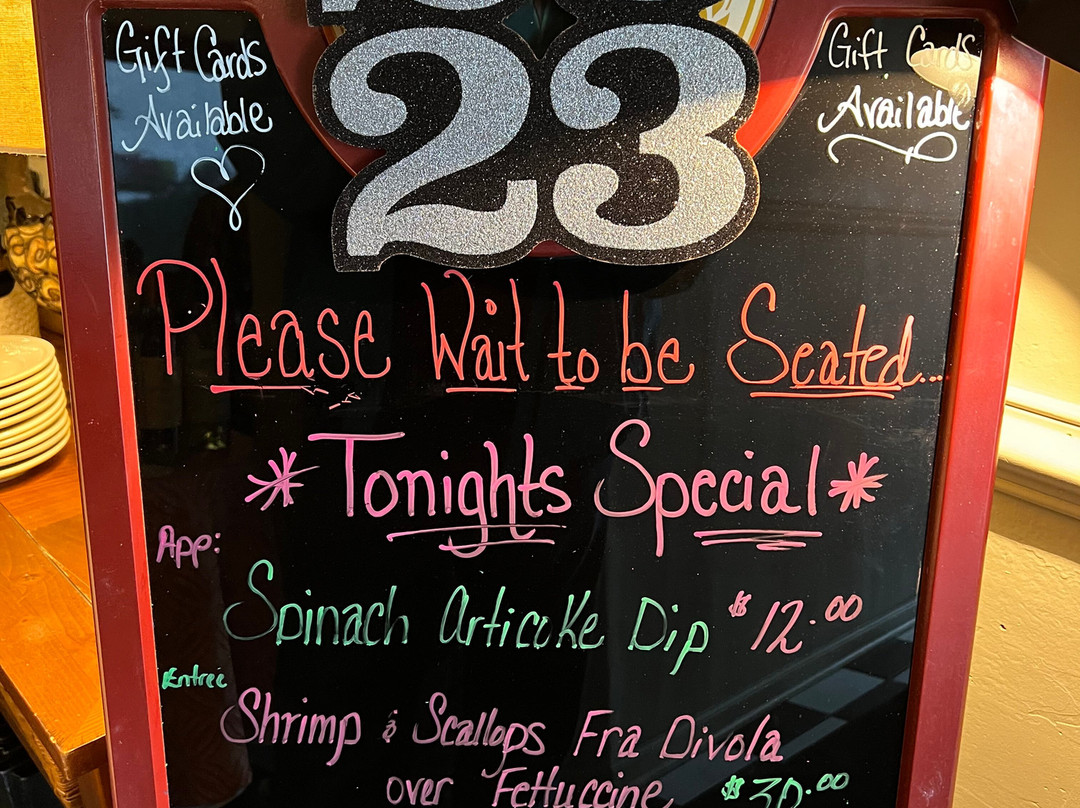 Gift Cards
Available
23
Gift Cards
Available
Please Wait to be Seated...
*Tonights Special*
App:
Spinach Articoke Dip $12.00
Entree
Shrimp & Scallops Fra Divola
over Fettuccine $30.00